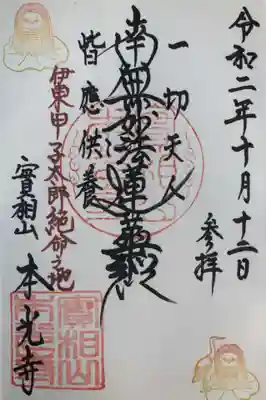 令和二年十月十二日
参拝
一切天人
南無妙法蓮華経
皆應供養
伊東甲子太郎絶命ノ地
實相山
本光寺